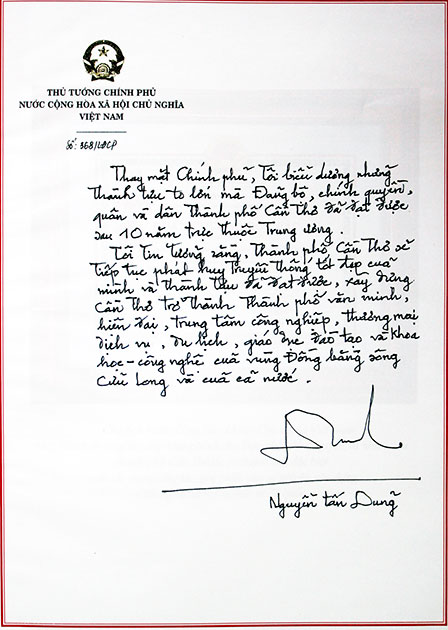 THỦ TƯỚNG CHÍNH PHỦ
NƯỚC CỘNG HÒA XÃ HỘI CHỦ NGHĨA
VIỆT NAM
Số: 368/LĐCP
Thay mặt Chính phủ, Tôi biểu dương những
thành tựu to lớn mà Đảng bộ, chính quyền,
quân và dân thành phố Cần Thơ đã đạt được
sau 10 năm trực thuộc Trung ương.
Tôi tin tưởng rằng, thành phố Cần Thơ sẽ
tiếp tục phát huy truyền thống tốt đẹp của
mình và thành tựu đã đạt được, xây dựng
Cần Thơ trở thành thành phố văn minh,
hiện đại, trung tâm công nghiệp, thương mại
dịch vụ, du lịch, giáo dục đào tạo và khoa
học - công nghệ của vùng Đồng bằng sông
Cửu Long và của cả nước.
Nguyễn Tấn Dũng